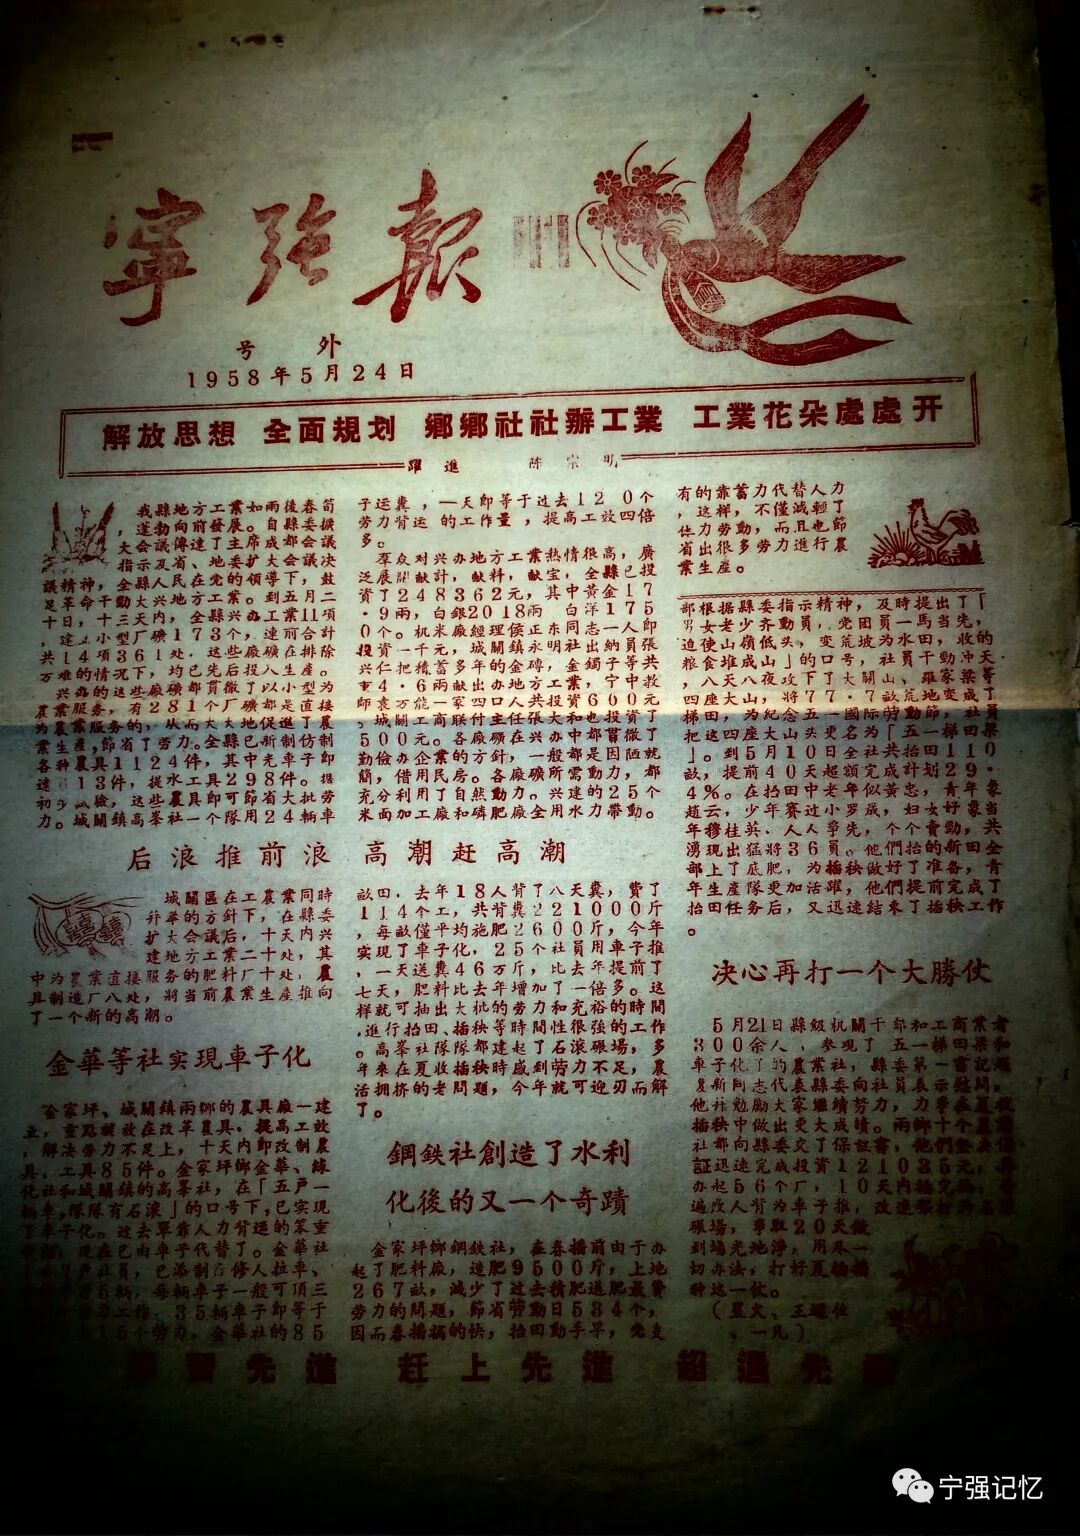 寧强報
号外
1958年5月24日
解放思想 全面規划 鄉鄉社社辦工業 工業花朵處處开
躍進 陈宗明
我縣地方工業如雨後春筍
，蓬勃向前發展。自縣委擴
大会議傳達了主席成都会議
指示及省、地委扩大会議决
議精神，全縣人民在党的領導下，鼓
足革命干勁大兴地方工業。到五月二
十日，十三天内，全縣兴办工業11項
，建立小型厂礦173个，連前合計
共14項361处。这些廠礦在排除
万难的情况下，均已先后投入生産。
兴办的这些廠礦都貫徹了以小型为
農業服务，有281个厂礦都是直接
为農業服务的，从而大大地促進了農
業生産，節省了劳力。全縣已新制仿制
各种農具1124件，其中光車子即
達613件，提水工具298件。據
初步試驗，这些農具即可節省大批劳
力。城關鎮高峯社一个隊用24輛車
子运糞，一天即等于过去120个
劳力背运的工作量，提高工效四倍
多。
羣众对兴办地方工業热情很高，廣
泛展開献計，献料，献宝，全縣已投
資了248362元，其中黄金17
·9兩，白銀2018兩，白洋175
0个。机米廠經理侯正东同志一人即
投資一千元，城關鎮永明社出納員張
兴仁把積蓄多年的金磚，金鐲子等共
重4·6兩献出办地方工業，宁中教
師袁万能一家四口人共投資600元
。城關工商联付主任張大和也投資了
500元。各廠礦在兴办中都貫徹了
勤儉办企業的方針，一般都是因陋就
簡，借用民房。各廠礦所需動力，都
充分利用了自然動力。兴建的25个
米面加工廠和磷肥廠全用水力帶動。
有的靠蓄力代替人力
，这样，不僅减輕了
体力劳動，而且也節
省出很多劳力進行農
業生産。
后浪推前浪 高潮赶高潮
城關區在工農業同時
并举的方針下，在縣委
扩大会議后，十天内兴
建地方工業二十处，其
中为農業直接服务的肥料厂十处，農
具制造厂八处，將当前農業生産推向
了一个新的高潮。
金華等社实現車子化
金家坪、城關鎮兩鄉的農具廠一建
立，重點就放在改革農具，提高工效
，解决劳力不足上，十天内即改制農
具、工具85件。金家坪鄉金華、緑
化社和城關鎮的高峯社，在「五戸一
輛車，隊隊有石滚」的口号下，已实現
了車子化。过去單靠人力背运的笨重
現在已由車子代替了。金華社
社員，已添制在修人拉車、
輛，每輛車子一般可頂三
劳力工作，35輛車子即等于
5个劳力，金華社的85
畝田，去年18人背了八天糞，費了
114个工，共背糞221000斤
，每畝僅平均施肥2600斤，今年
实現了車子化，25个社員用車子推
，一天送糞46万斤，比去年提前了
七天，肥料比去年增加了一倍多。这
样就可抽出大批的劳力和充裕的時間
，進行抬田、插秧等時間性很强的工作
。高峯社隊隊都建起了石滚碾場，多
年來在夏收插秧時感到劳力不足，農
活拥挤的老問題，今年就可迎刃而解
了。
鋼鉄社創造了水利
化後的又一个奇蹟
金家坪鄉鋼鉄社，在春播前由于办
起了肥料廠，造肥9500斤，上地
267畝，减少了过去積肥送肥最費
劳力的問題，節省劳動日534个，
因而春播搞的快，抬田動手早，党支
部根据縣委指示精神，及時提出了「
男女老少齐動員，党团員一馬当先，
迫使山嶺低头，变荒坡为水田，收的
粮食堆成山」的口号，社員干勁冲天
，八天八夜攻下了大關山、羅家梁等
四座大山，將77·7畝荒地变成了
梯田，为紀念五一國际劳動節，社員
把这四座大山头更名为「五一梯田梁
」。到5月10日全社共抬田110
畝，提前40天超額完成計划29·
4%。在抬田中老年似黄忠，青年象
趙云，少年賽过小罗成，妇女好象当
年穆桂英，人人爭先，个个奮勁，共
湧現出猛將36員。他們抬的新田全
部上了底肥，为插秧做好了准备，青
年生産隊更加活躍，他們提前完成了
抬田任务后，又迅速結束了插秧工作
。
决心再打一个大勝仗
5月21日縣级机關干部和工商業者
300余人，参观了五一梯田梁和
車子化了的農業社，縣委第一書記趙
复新同志代表縣委向社員表示慰問，
他并勉励大家繼續努力，力爭在夏收
插秧中做出更大成績。兩鄉十个農業
社都向縣委交了保証書，他們坚决保
証迅速完成投資121035元，
办起56个厂，10天内插完秧，普
遍改人背为車子推，改連枷打为石滚
碾場，爭取20天做
到場光地淨，用来一
切办法，打好夏插播
种这一仗。
（星火、王
、一凡）
先進 赶上先進 超過先
宁强记忆